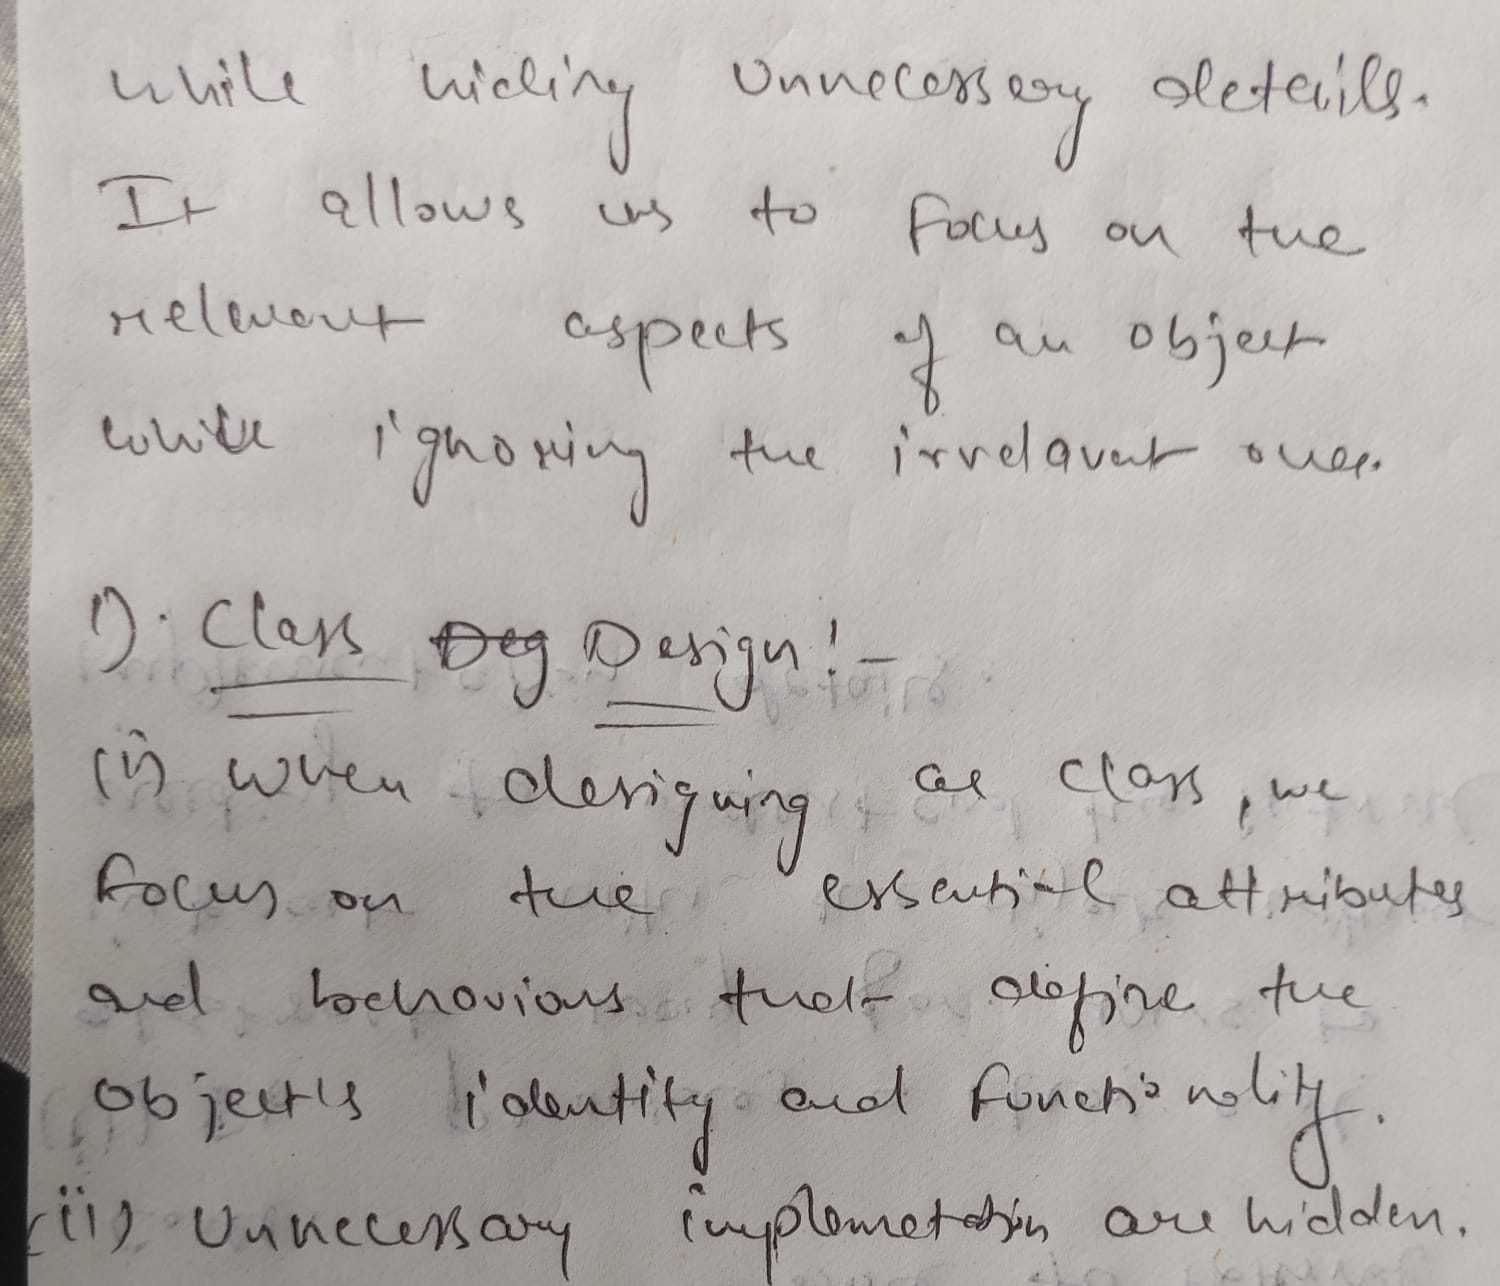 while hiding unnecessary details.
It allows us to focus on the
relevant aspects of an object
while ignoring the irrelavent ones.
1). Class Deg Design:-
(i) When designing a class, we
focus on the essential attributes
and behaviours that define the
object's identity and functionality.
(ii) Unnecessary implemetation are hidden.